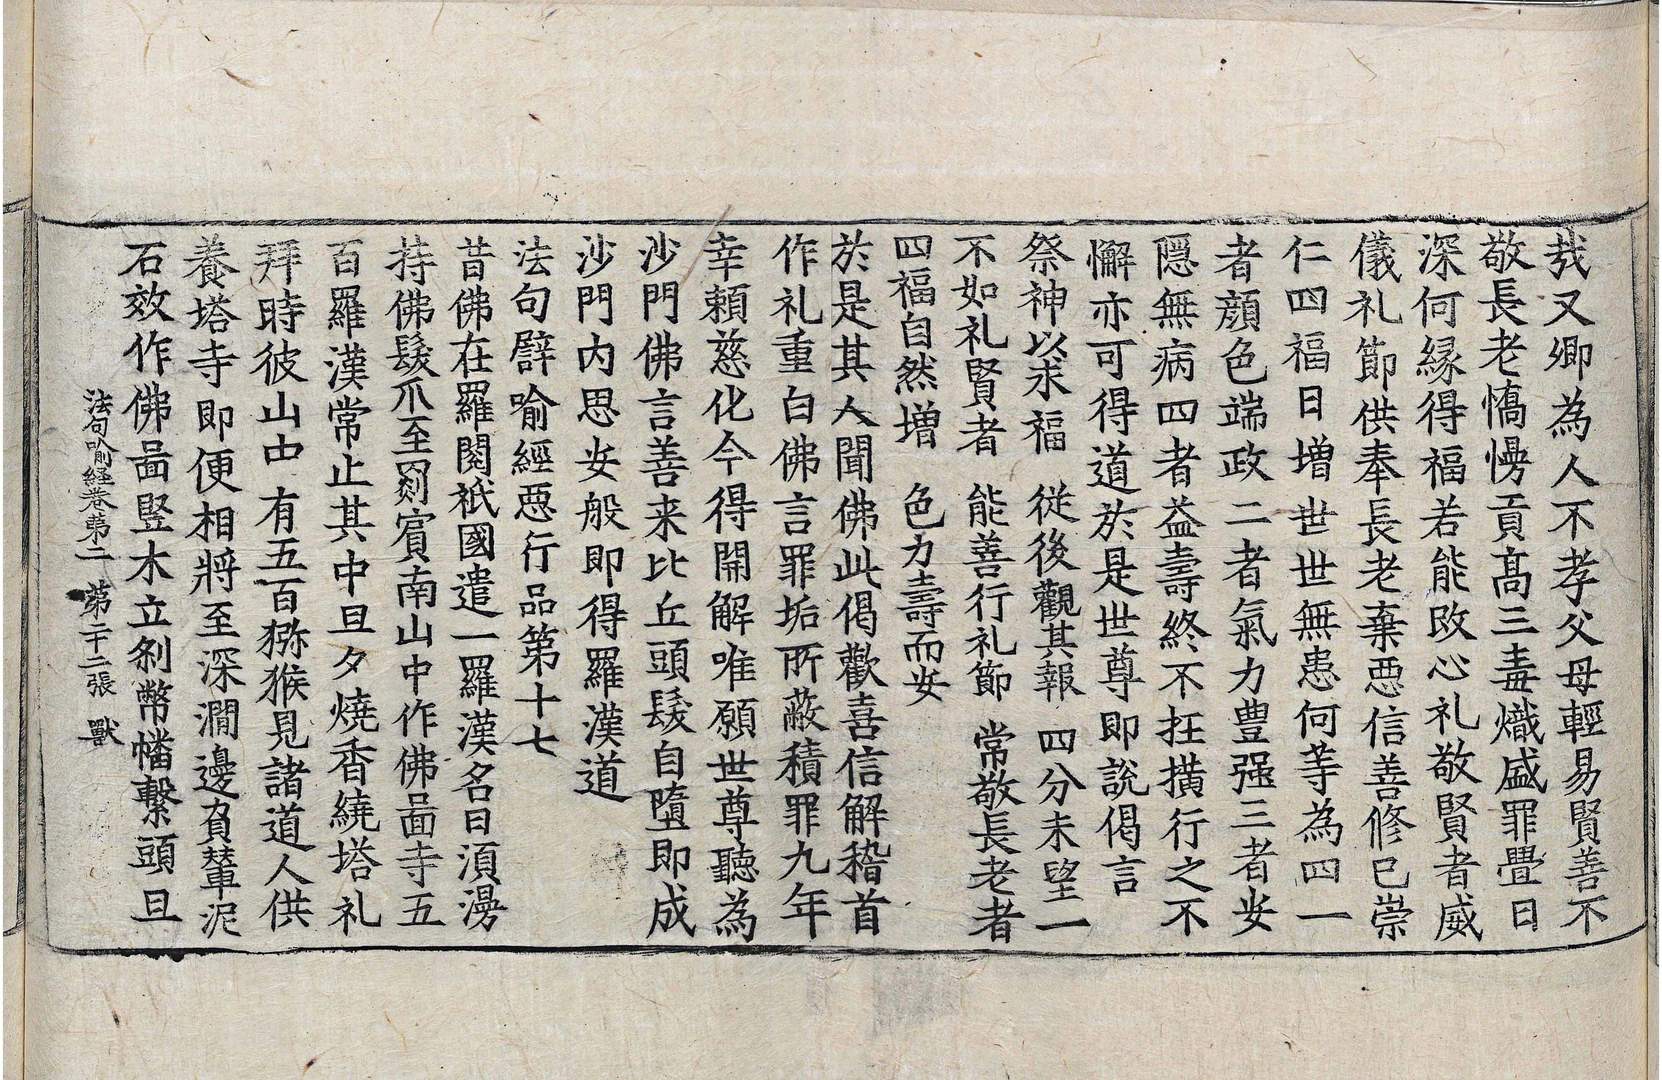 哉又卿為人不孝父母輕易賢善不
敬長老憍慢貢髙三毒熾盛罪疊日
深何縁得福若能改心礼敬賢者威
儀礼節供奉長老棄悪信善修已崇
仁四福日增世世無患何等為四一
者顔色端政二者氣力豊强三者安
隠無病四者益壽終不抂擴行之不
懈亦可得道於是世尊即說偈言
祭神以求福　從後觀其報　四分未望一
不如礼賢者　能善行礼節　常敬長老者
四福自然增　色力壽而安
於是其人聞佛此偈歡喜信解稽首
作礼重白佛言罪垢所蔽積罪九年
幸頼慈化今得開解唯願世尊聽為
沙門佛言善来比丘頭髮自墮即成
沙門内思安般即得羅漢道
法句譬喻經惡行品第十七
昔佛在羅閱祇國遣一羅漢名曰湏漫
持佛髮爪至罽賓南山中作佛啚寺五
百羅漢常止其中旦夕燒香繞塔礼
拜時彼山中有五百猕猴見諸道人供
養塔寺即便相將至深澗邊負輦泥
石效作佛啚竪木立刹幣幡繫頭旦
法句喻経卷第二　第二十二張　獸